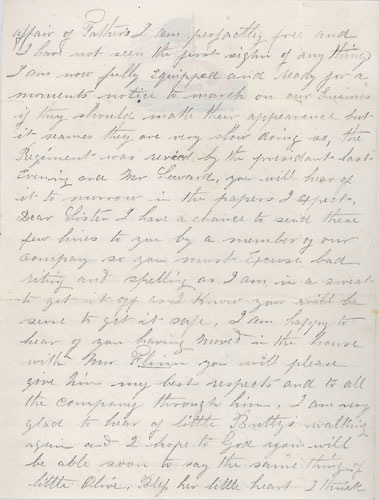 affair of Fathers I am perfectly free and
I have not seen the first sight of any thing
I am now fully Equipped and ready for a
moments notice to march on our Enimies
if they should make their appearence but
it seames they are very slow doing so, the
Regiment was by the president last
Evening and Mr Seward, you will hear of
it to morrow in the papers I expect,
Dear Sister I have a chance to send these
few lines to you by a member of our
Company so you must Excuse bad
riting and spelling as I am in a sweat
to get it off as I know you will be
sure to get it safe, I am happy to
hear of you having moved in the house
with Mr you will please
give him my best respects and to all
the company through him, I am very
glad to hear of little walking
again and I hope to God you will
be able soon to say the same thing of
little Olive, Bless her little heart I think